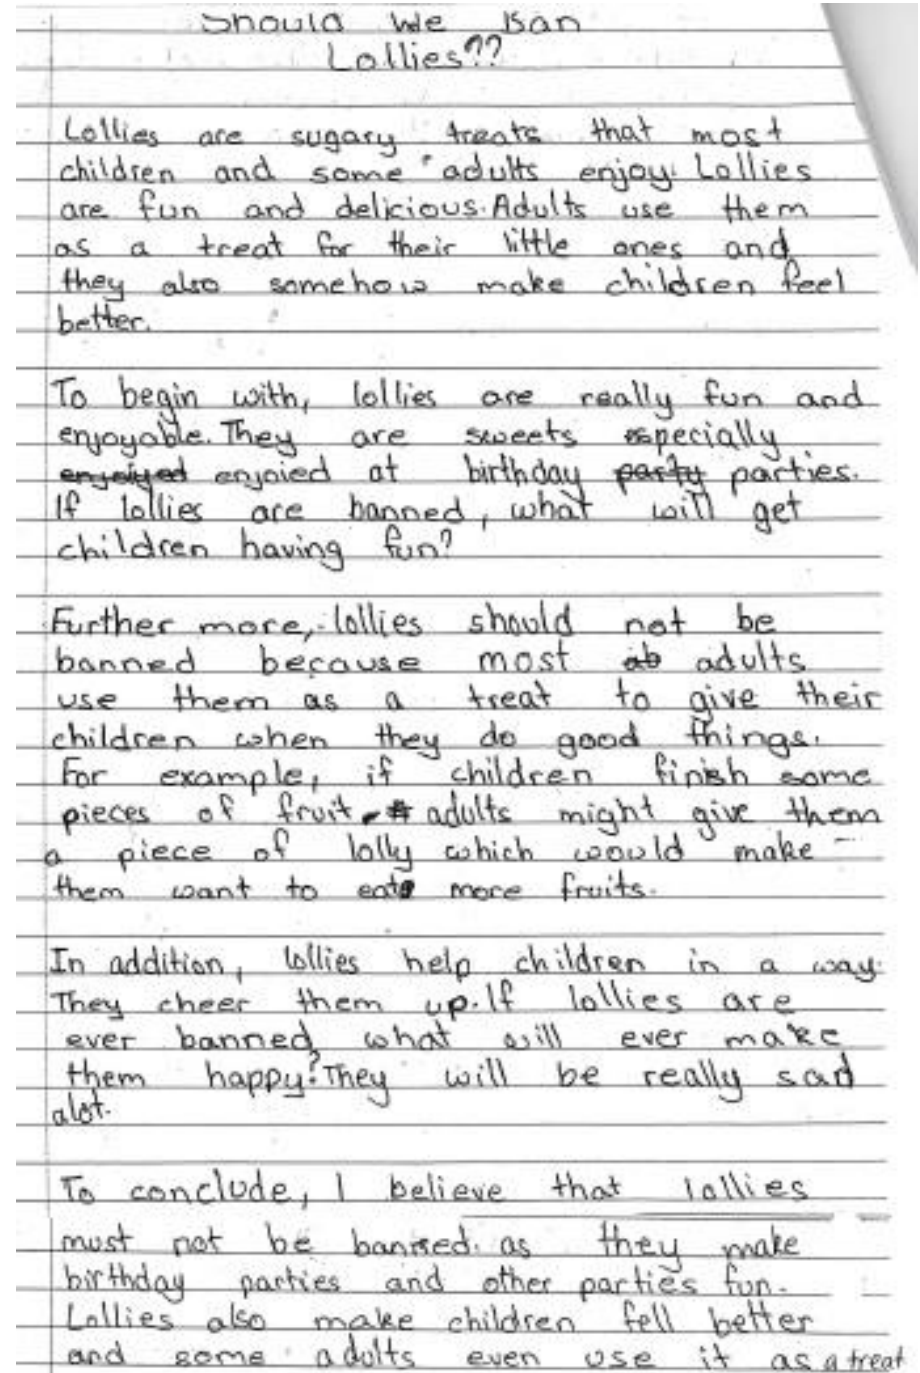 Should We Ban
Lollies??
Lollies are sugary treats that most
children and some adults enjoy. Lollies
are fun and delicious. Adults use them
as a treat for their little ones and
they also somehow make children feel
better.
To begin with, lollies are really fun and
enjoyable. They are sweets especially
enjoiyed enjoied at birthday party parties.
If lollies are banned, what will get
children having fun?
Further more, lollies should not be
banned because most ab adults
use them as a treat to give their
children when they do good things.
For example, if children finish some
pieces of fruit, adults might give them
a piece of lolly which woould make
them want to eat more fruits.
In addition, lollies help children in a way.
They cheer them up. If lollies are
ever banned what will ever make
them happy? They will be really sad
alot.
To conclude, I believe that lollies
must not be banned. as they make
birthday parties and other parties fun.
Lollies also make children fell better
and some adults even use it as a treat